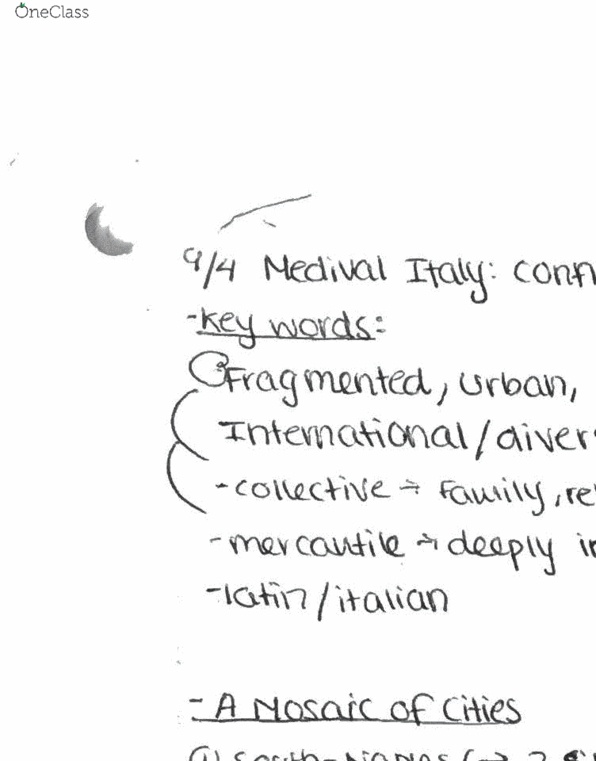 OneClass
9/4 Medival Italy: conf
-key words:
Fragmented, urban,
International/diver
-collective → family, re
-mercantile → deeply in
-latin/italian
- A Mosaic of Cities